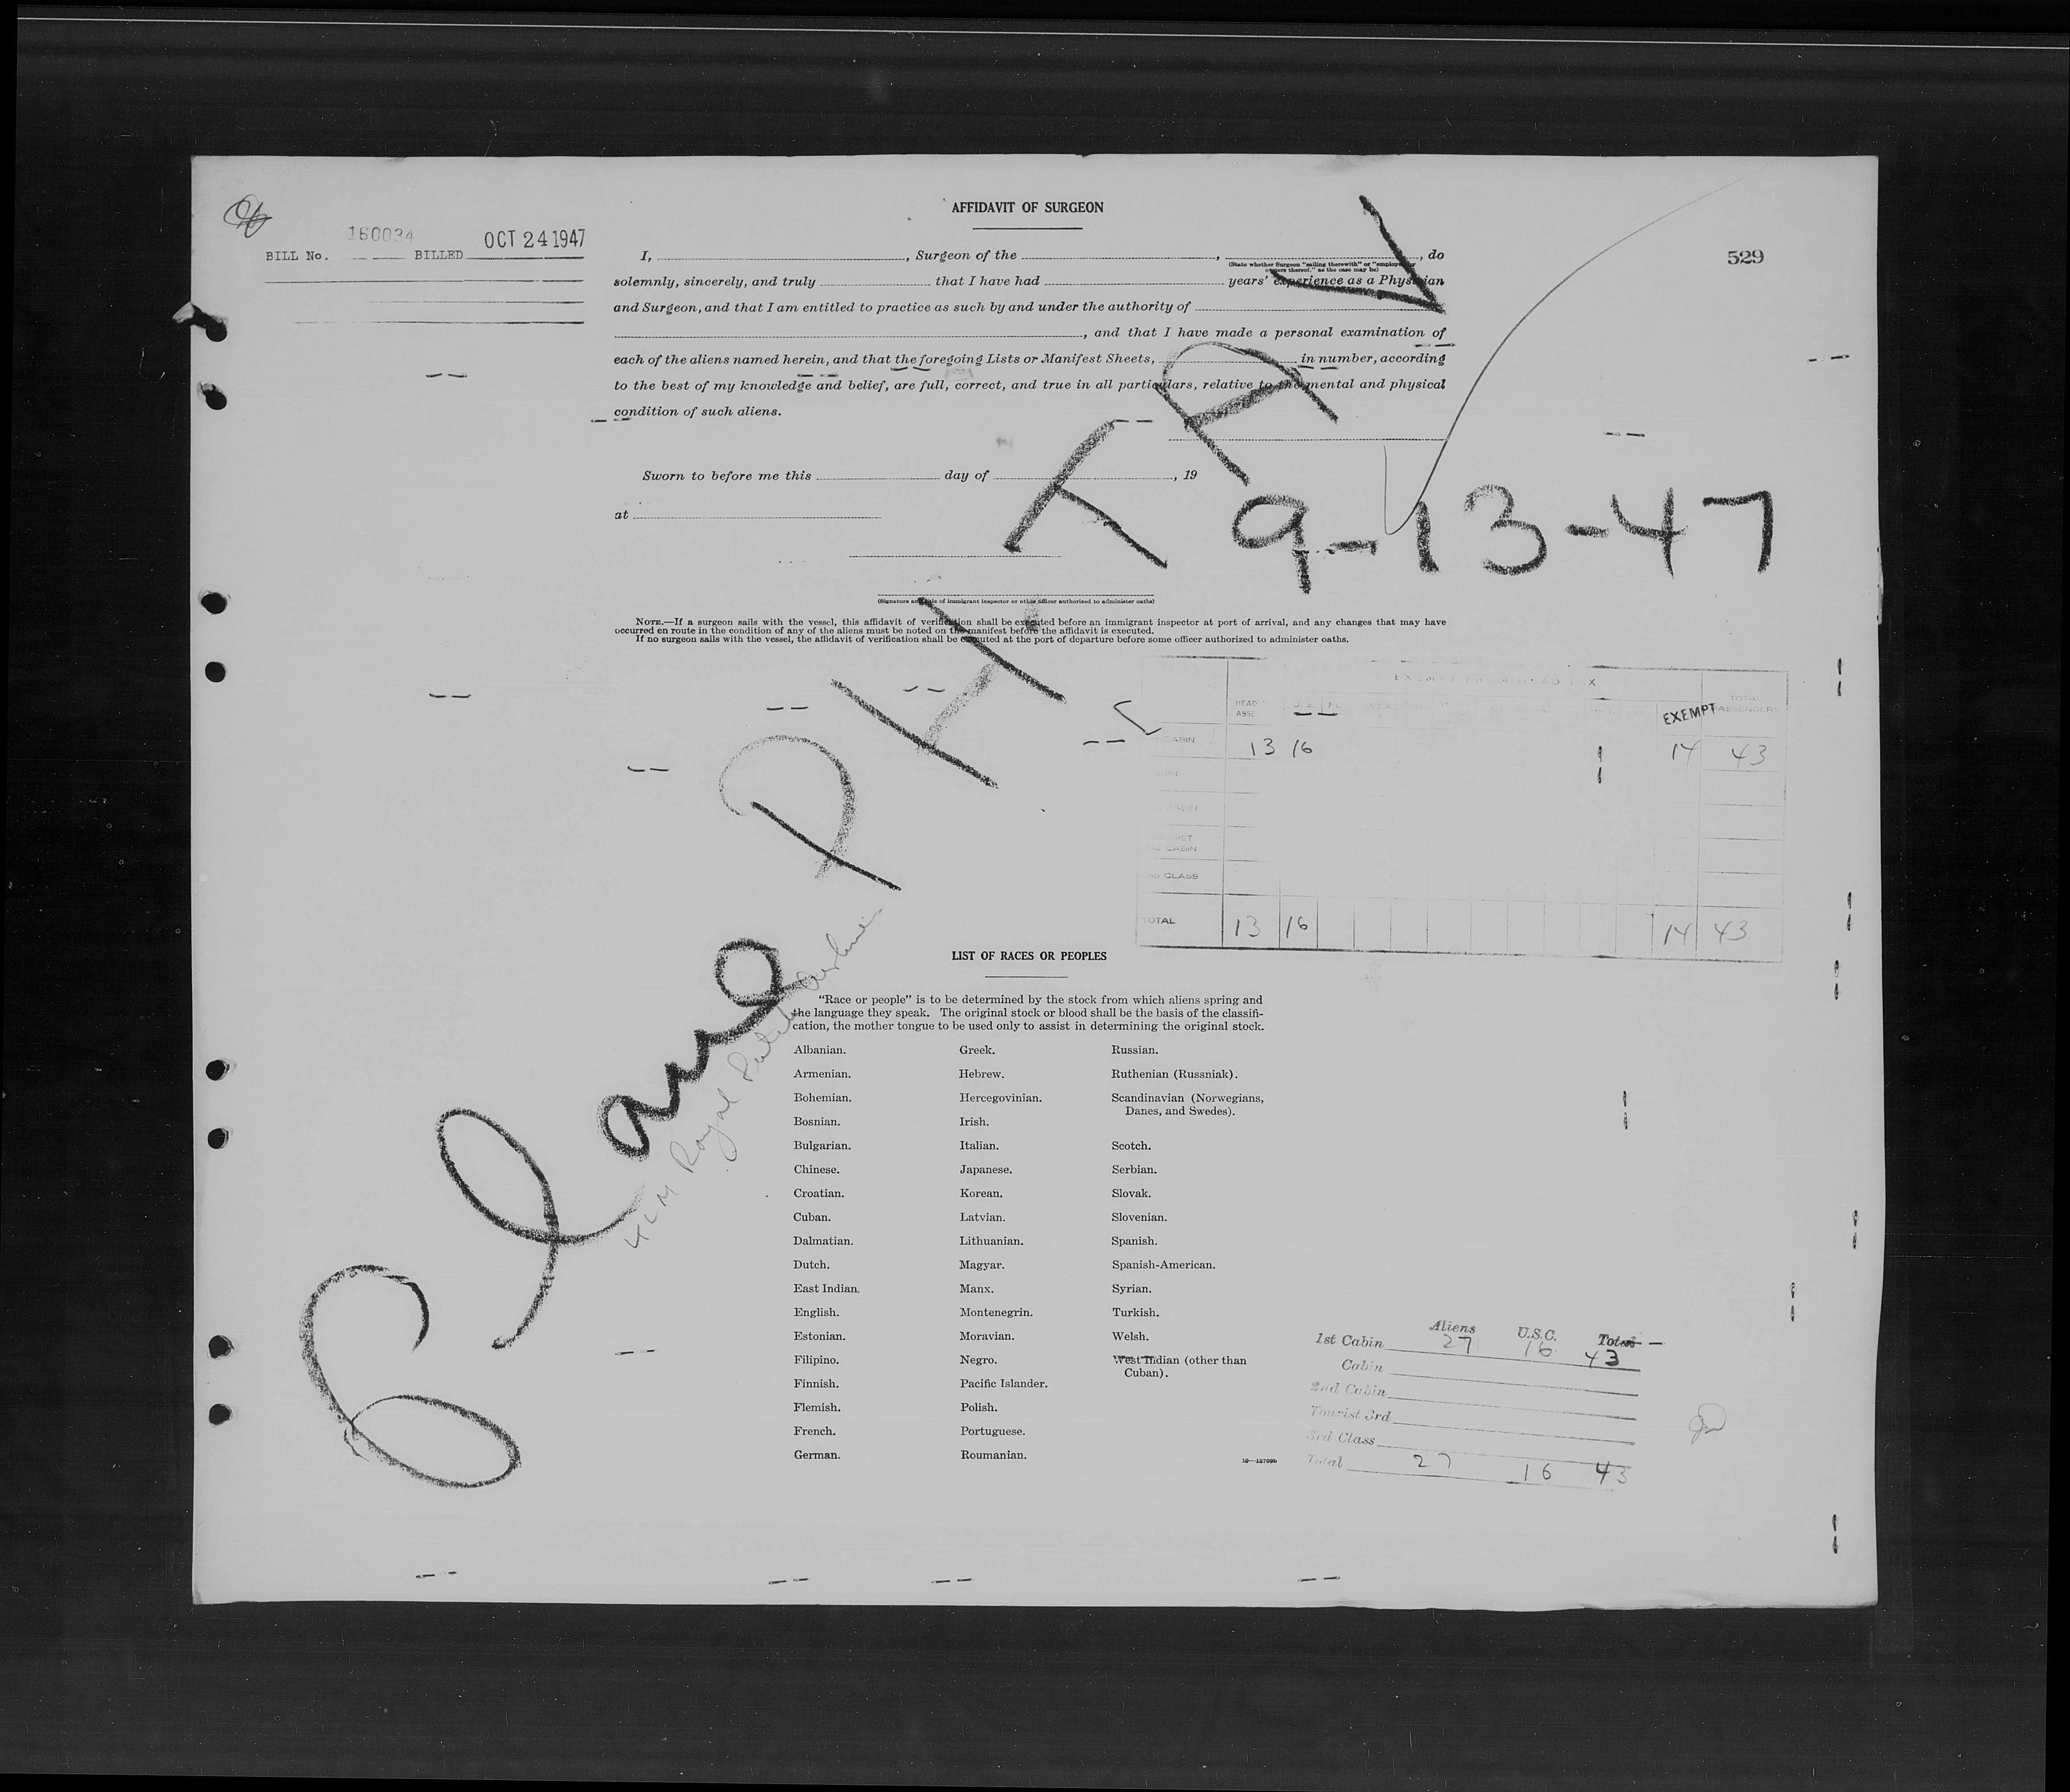 AFFIDAVIT OF SURGEON
160034
OCT 24 1947
BILL No. BILLED
529
I, , Surgeon of the , , do
(State whether Surgeon "sailing therewith" or "employed by
owners thereof," as the case may be)
solemnly, sincerely, and truly that I have had years' experience as a Physician
and Surgeon, and that I am entitled to practice as such by and under the authority of
, and that I have made a personal examination of
each of the aliens named herein, and that the foregoing Lists or Manifest Sheets, in number, according
to the best of my knowledge and belief, are full, correct, and true in all particulars, relative to the mental and physical
condition of such aliens.
Sworn to before me this day of , 19
at
9-13-47
Plane PH-TAV
KLM Royal Dutch Airlines
(Signature and title of immigrant inspector or other officer authorized to administer oaths)
NOTE.—If a surgeon sails with the vessel, this affidavit of verification shall be executed before an immigrant inspector at port of arrival, and any changes that may have
occurred en route in the condition of any of the aliens must be noted on the manifest before the affidavit is executed.
If no surgeon sails with the vessel, the affidavit of verification shall be executed at the port of departure before some officer authorized to administer oaths.
EXEMPT FROM HEAD TAX
HEAD TOTAL
ASSE. EXEMPT PASSENGERS
CABIN 13 16 14 43
CABIN
TOURIST
CABIN
CLASS
TOTAL 13 16 14 43
LIST OF RACES OR PEOPLES
"Race or people" is to be determined by the stock from which aliens spring and
the language they speak. The original stock or blood shall be the basis of the classifi-
cation, the mother tongue to be used only to assist in determining the original stock.
Albanian.
Armenian.
Bohemian.
Bosnian.
Bulgarian.
Chinese.
Croatian.
Cuban.
Dalmatian.
Dutch.
East Indian.
English.
Estonian.
Filipino.
Finnish.
Flemish.
French.
German.
Greek.
Hebrew.
Hercegovinian.
Irish.
Italian.
Japanese.
Korean.
Latvian.
Lithuanian.
Magyar.
Manx.
Montenegrin.
Moravian.
Negro.
Pacific Islander.
Polish.
Portuguese.
Roumanian.
Russian.
Ruthenian (Russniak).
Scandinavian (Norwegians,
Danes, and Swedes).
Scotch.
Serbian.
Slovak.
Slovenian.
Spanish.
Spanish-American.
Syrian.
Turkish.
Welsh.
West Indian (other than
Cuban).
Aliens U.S.C. Total
1st Cabin 27 16 43
Cabin
2nd Cabin
Tourist 3rd
3rd Class
Total 27 16 43